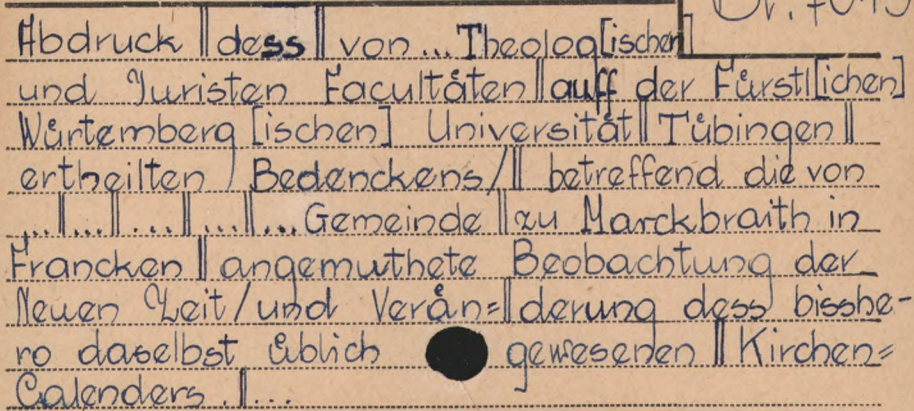 Abdruck || dess || von ... Theolog[ischen]
und Juristen Facultåten || auff der Fůrstl[ichen]
Wůrtemberg[ischen] Universitåt || Tůbingen ||
ertheilten / Bedenckens / || betreffend die von
...||...||...||...||... Gemeinde || zu Marckbraith in
Francken || angemuthete Beobachtung der
Neuen Zeit / und Verån=||derung dess bisshe-
ro daselbst ůblich gewesenen || Kirchen=
Calenders . || ...